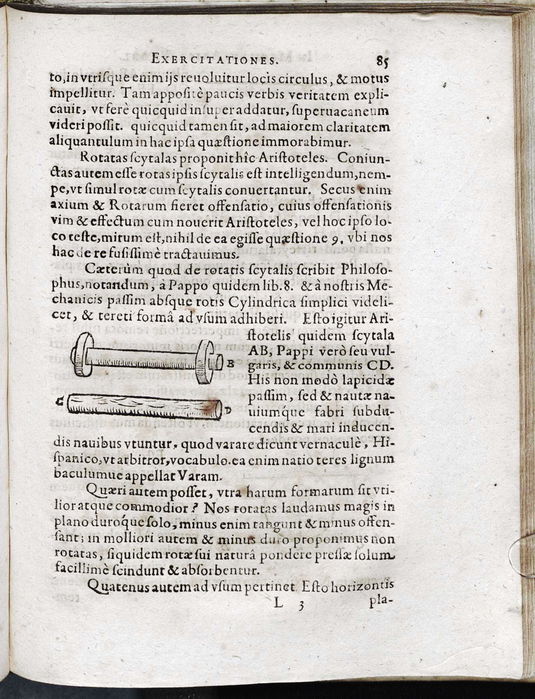 EXERCITATIONES. 85
to, in vtrisque enim ijs reuoluitur locis circulus, & motus
impellitur. Tam appositè paucis verbis veritatem expli-
cauit, vt ferè quicquid insuper addatur, superuacaneum
videri possit. quicquid tamen sit, ad maiorem claritatem
aliquantulum in hac ipsa quæstione immorabimur.
Rotatas scytalas proponit hîc Aristoteles. Coniun-
ctas autem esse rotas ipsis scytalis est intelligendum, nem-
pe, vt simul rotæ cum scytalis conuertantur. Secus enim
axium & Rotarum fieret offensatio, cuius offensationis
vim & effectum cum nouerit Aristoteles, vel hoc ipso lo-
co teste, mirum est, nihil de ea egisse quæstione 9. vbi nos
hac de re fusissimè tractauimus.
Cæterùm quod de rotatis scytalis scribit Philoso-
phus, notandum, à Pappo quidem lib. 8. & à nostris Me-
chanicis passim absque rotis Cylindrica simplici videli-
cet, & tereti formâ ad vsum adhiberi. Esto igitur Ari-
stotelis quidem scytala
AB, Pappi verò seu vul-
garis, & communis CD.
His non modò lapicidæ
passim, sed & nautæ na-
uiumque fabri subdu-
cendis & mari inducen-
B
C
D
dis nauibus vtuntur, quod varare dicunt vernaculè, Hi-
spanico, vt arbitror, vocabulo. ea enim natio teres lignum
baculumue appellat Varam.
Quæri autem posset, vtra harum formarum sit vti-
lior atque commodior? Nos rotatas laudamus magis in
plano duroque solo, minus enim tangunt & minus offen-
sant; in molliori autem & minus duro proponimus non
rotatas, siquidem rotæ sui naturâ pondere pressæ solum
facillimè scindunt & absorbentur.
Quatenus autem ad vsum pertinet. Esto horizontis
L 3 pla-